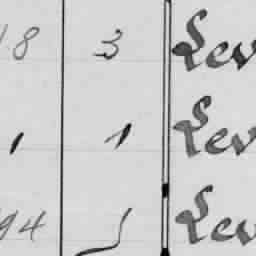 18 3 Lev
1 1 Lev
94 1 Lev